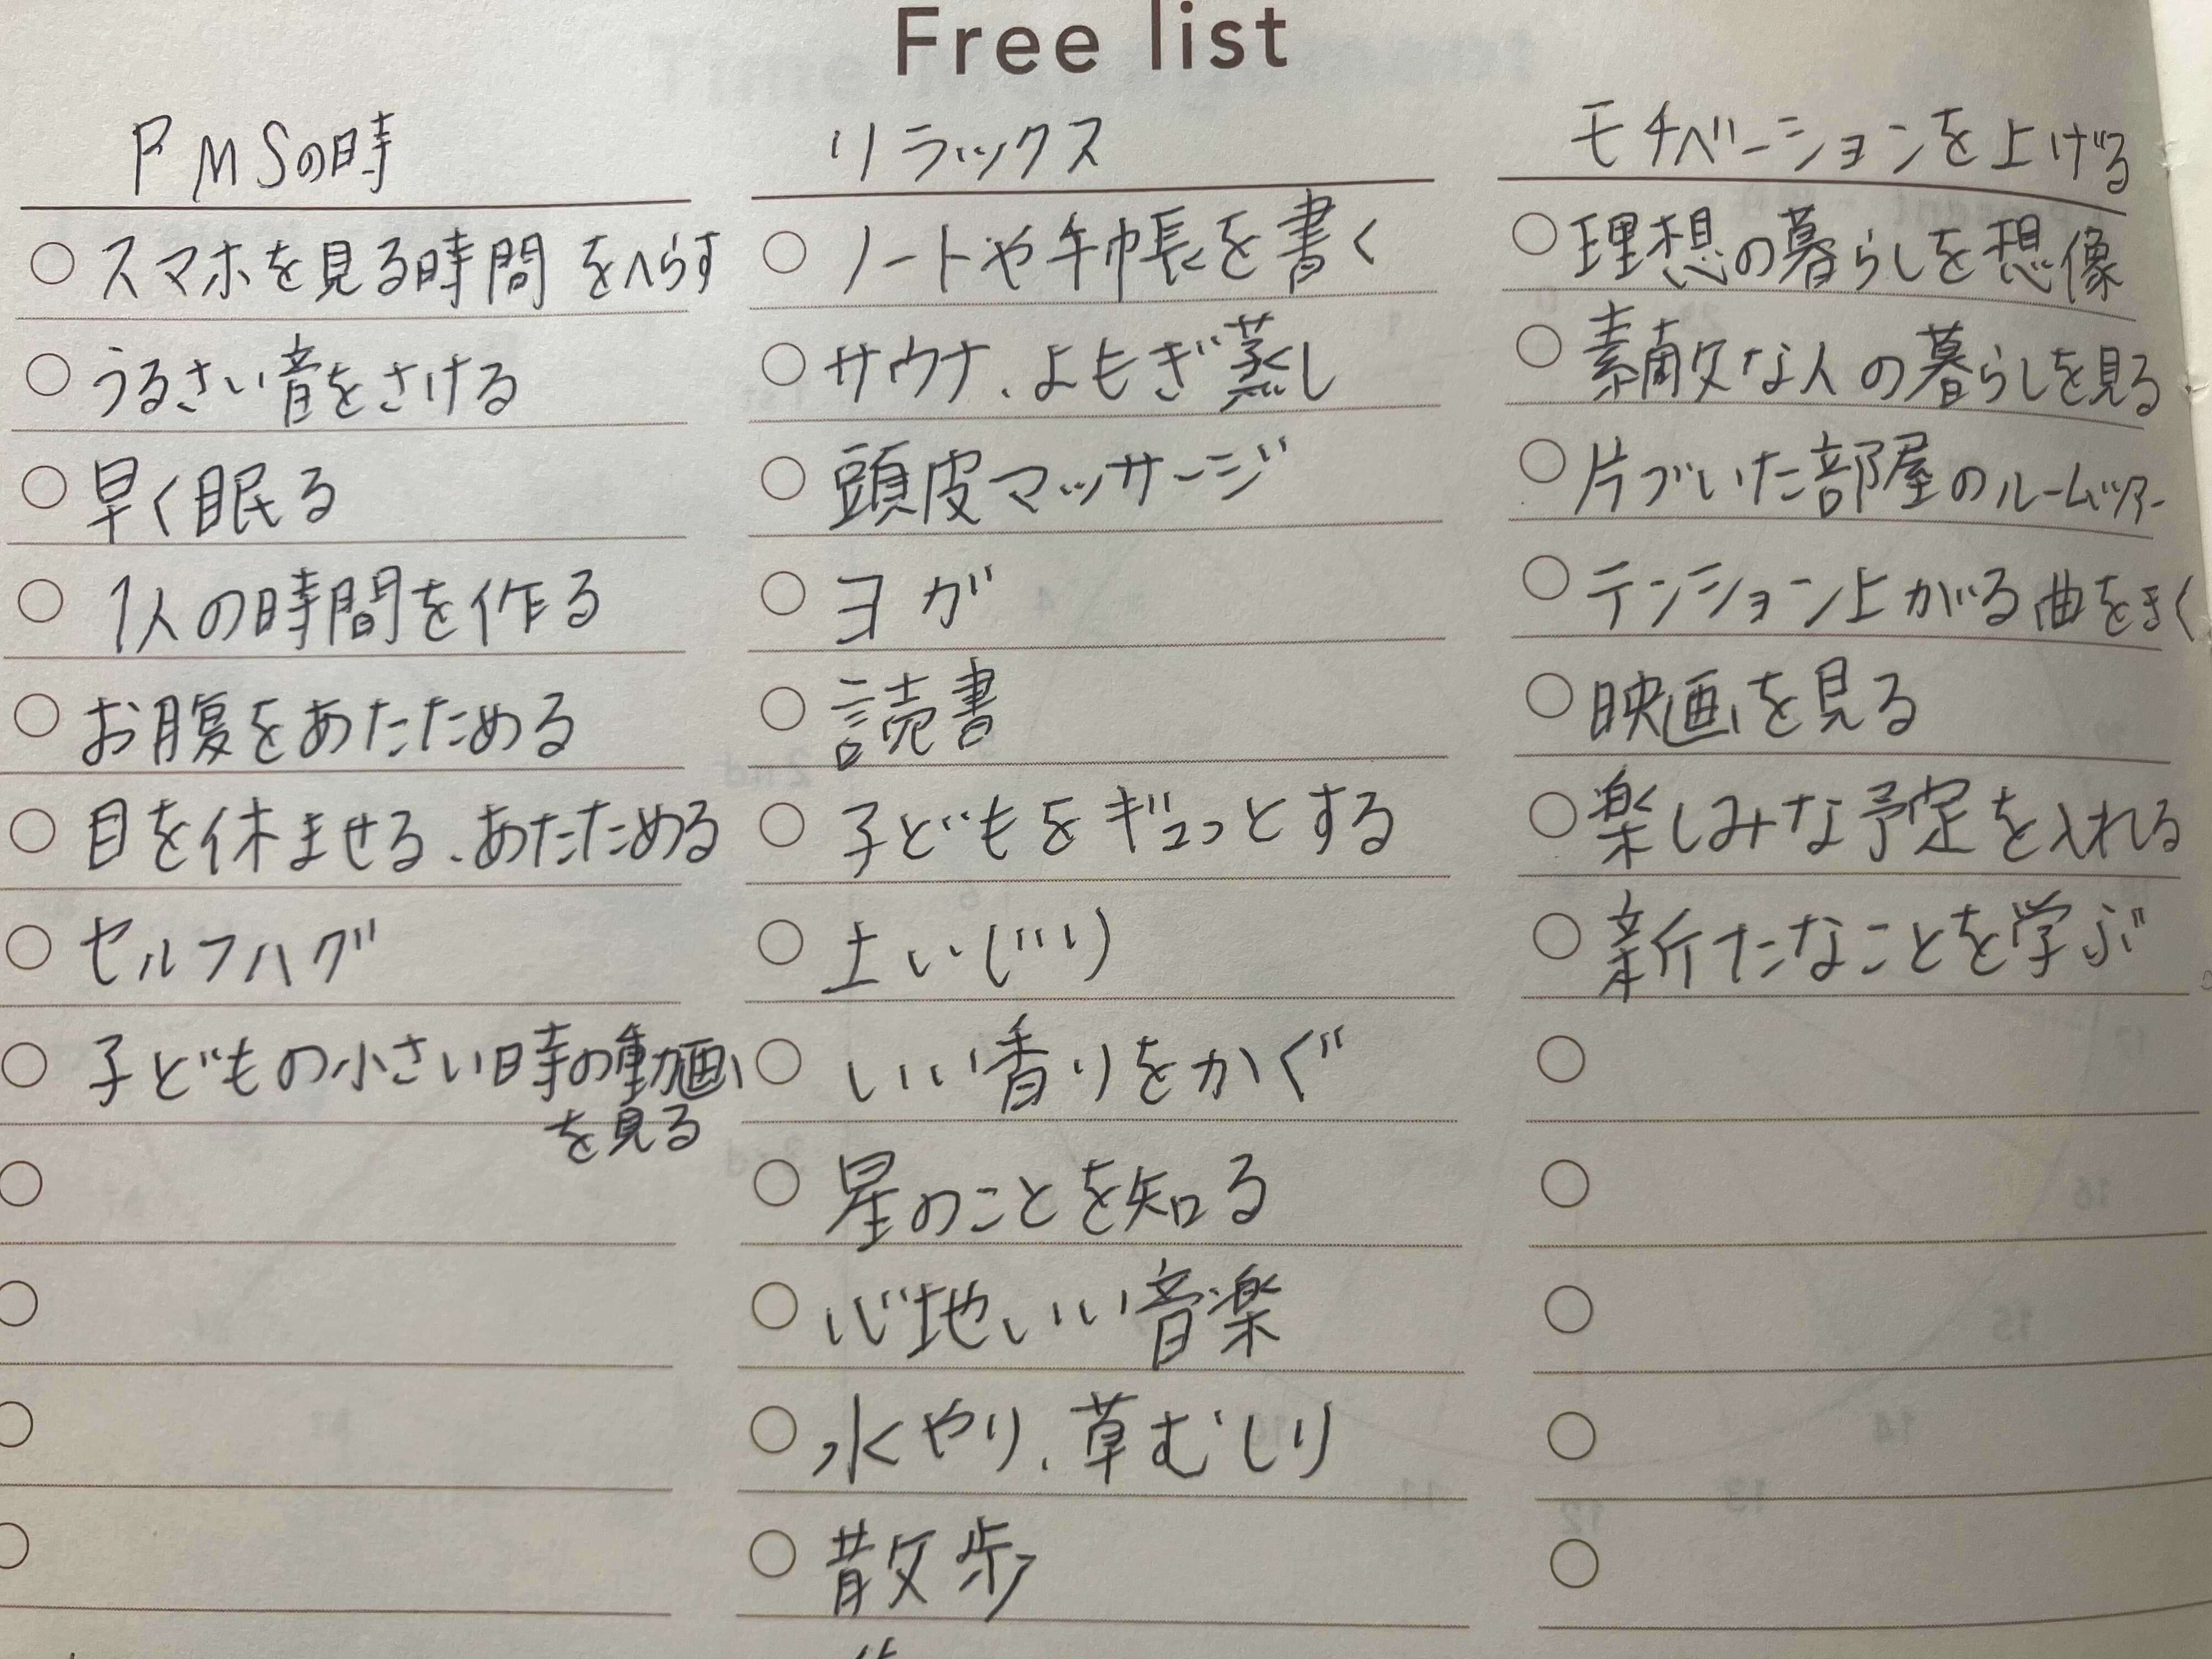 Free list
PMSの時
スマホを見る時間をへらす
うるさい音をさける
早く眠る
1人の時間を作る
お腹をあたためる
目を休ませる、あたためる
セルフハグ
子どもの小さい時の動画
を見る
リラックス
ノートや手帳を書く
サウナ、よもぎ蒸し
頭皮マッサージ
ヨガ
読書
子どもをギュっとする
土いじり
いい香りをかぐ
星のことを知る
心地いい音楽
水やり、草むしり
散歩
モチベーションを上げる
理想の暮らしを想像
素敵な人の暮らしを見る
片づいた部屋のルームツアー
テンション上がる曲をきく
映画を見る
楽しみな予定を入れる
新たなことを学ぶ